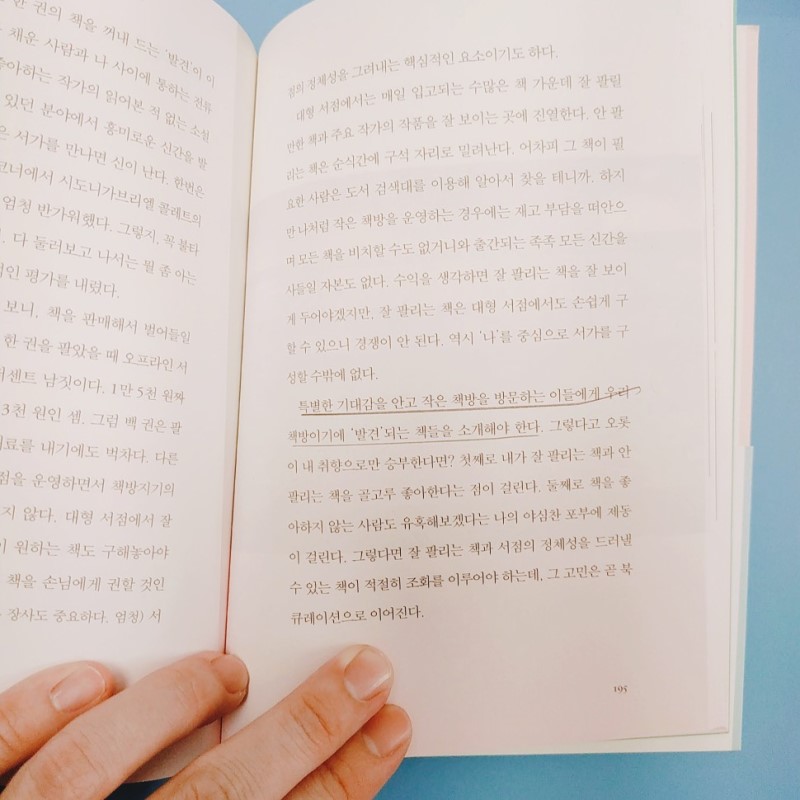 한 권의 책을 꺼내 드는 ‘발견’이 이
채운 사람과 나 사이에 통하는 전류
좋아하는 작가의 읽어본 적 없는 소설
있던 분야에서 흥미로운 신간을 발
은 서가를 만나면 신이 난다. 한번은
코너에서 시도니가브리엘 콜레트의
엄청 반가워했다. 그렇지, 꼭 불타
다 둘러보고 나서는 뭘 좀 아는
적인 평가를 내렸다.
보니, 책을 판매해서 벌어들일
한 권을 팔았을 때 오프라인 서
퍼센트 남짓이다. 1만 5천 원짜
3천 원인 셈. 그럼 백 권은 팔
료를 내기에도 벅차다. 다른
점을 운영하면서 책방지기의
지 않다. 대형 서점에서 잘
이 원하는 책도 구해놓아야
책을 손님에게 권할 것인
장사도 중요하다. 엄청) 서
점의 정체성을 그려내는 핵심적인 요소이기도 하다.
대형 서점에서는 매일 입고되는 수많은 책 가운데 잘 팔릴
만한 책과 주요 작가의 작품을 잘 보이는 곳에 진열한다. 안 팔
리는 책은 순식간에 구석 자리로 밀려난다. 어차피 그 책이 필
요한 사람은 도서 검색대를 이용해 알아서 찾을 테니까. 하지
만 나처럼 작은 책방을 운영하는 경우에는 재고 부담을 떠안으
며 모든 책을 비치할 수도 없거니와 출간되는 족족 모든 신간을
사들일 자본도 없다. 수익을 생각하면 잘 팔리는 책을 잘 보이
게 두어야겠지만, 잘 팔리는 책은 대형 서점에서도 손쉽게 구
할 수 있으니 경쟁이 안 된다. 역시 ‘나’를 중심으로 서가를 구
성할 수밖에 없다.
특별한 기대감을 안고 작은 책방을 방문하는 이들에게 우리
책방이기에 ‘발견’되는 책들을 소개해야 한다. 그렇다고 오롯
이 내 취향으로만 승부한다면? 첫째로 내가 잘 팔리는 책과 안
팔리는 책을 골고루 좋아한다는 점이 걸린다. 둘째로 책을 좋
아하지 않는 사람도 유혹해보겠다는 나의 야심찬 포부에 제동
이 걸린다. 그렇다면 잘 팔리는 책과 서점의 정체성을 드러낼
수 있는 책이 적절히 조화를 이루어야 하는데, 그 고민은 곧 북
큐레이션으로 이어진다.
195